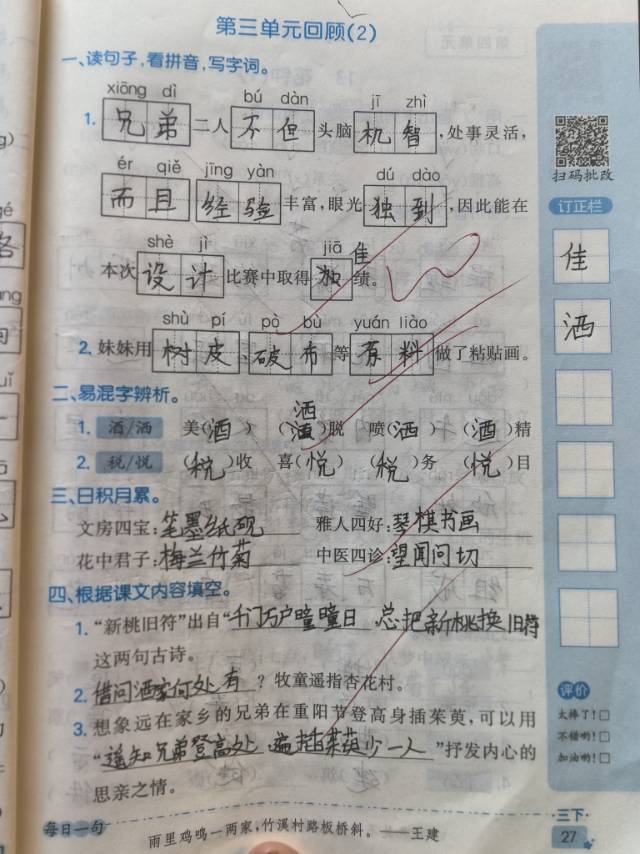 第三单元回顾(2)
一、读句子,看拼音,写字词。
xiōng dì bú dàn jī zhì
1. 兄弟二人不但头脑机智,处事灵活,
ér qiě jīng yàn dú dào
而且经验丰富,眼光独到,因此能在
shè jì jiā 佳
本次设计比赛中取得绩。
shù pí pò bù yuán liào
2. 妹妹用树皮、破布等有料做了粘贴画。
二、易混字辨析。
洒
1. 酒/洒 美(酒) ()脱 喷(洒) (酒)精
2. 税/悦 (税)收 喜(悦) (税)务 (悦)目
三、日积月累。
文房四宝:笔墨纸砚 雅人四好:琴棋书画
花中君子:梅兰竹菊 中医四诊:望闻问切
四、根据课文内容填空。
1. “新桃旧符”出自“千门万户曈曈日 总把新桃换旧符
这两句古诗。
2. 借问酒家何处有?牧童遥指杏花村。
3. 想象远在家乡的兄弟在重阳节登高身插茱萸,可以用
“遥知兄弟登高处 遍插茱萸少一人”抒发内心的
思亲之情。
每日一句 雨里鸡鸣一两家,竹溪村路板桥斜。——王建
扫码批改
订正栏
佳
洒
评价
太棒了!□
不错哟!□
加油哟!□
三下
27